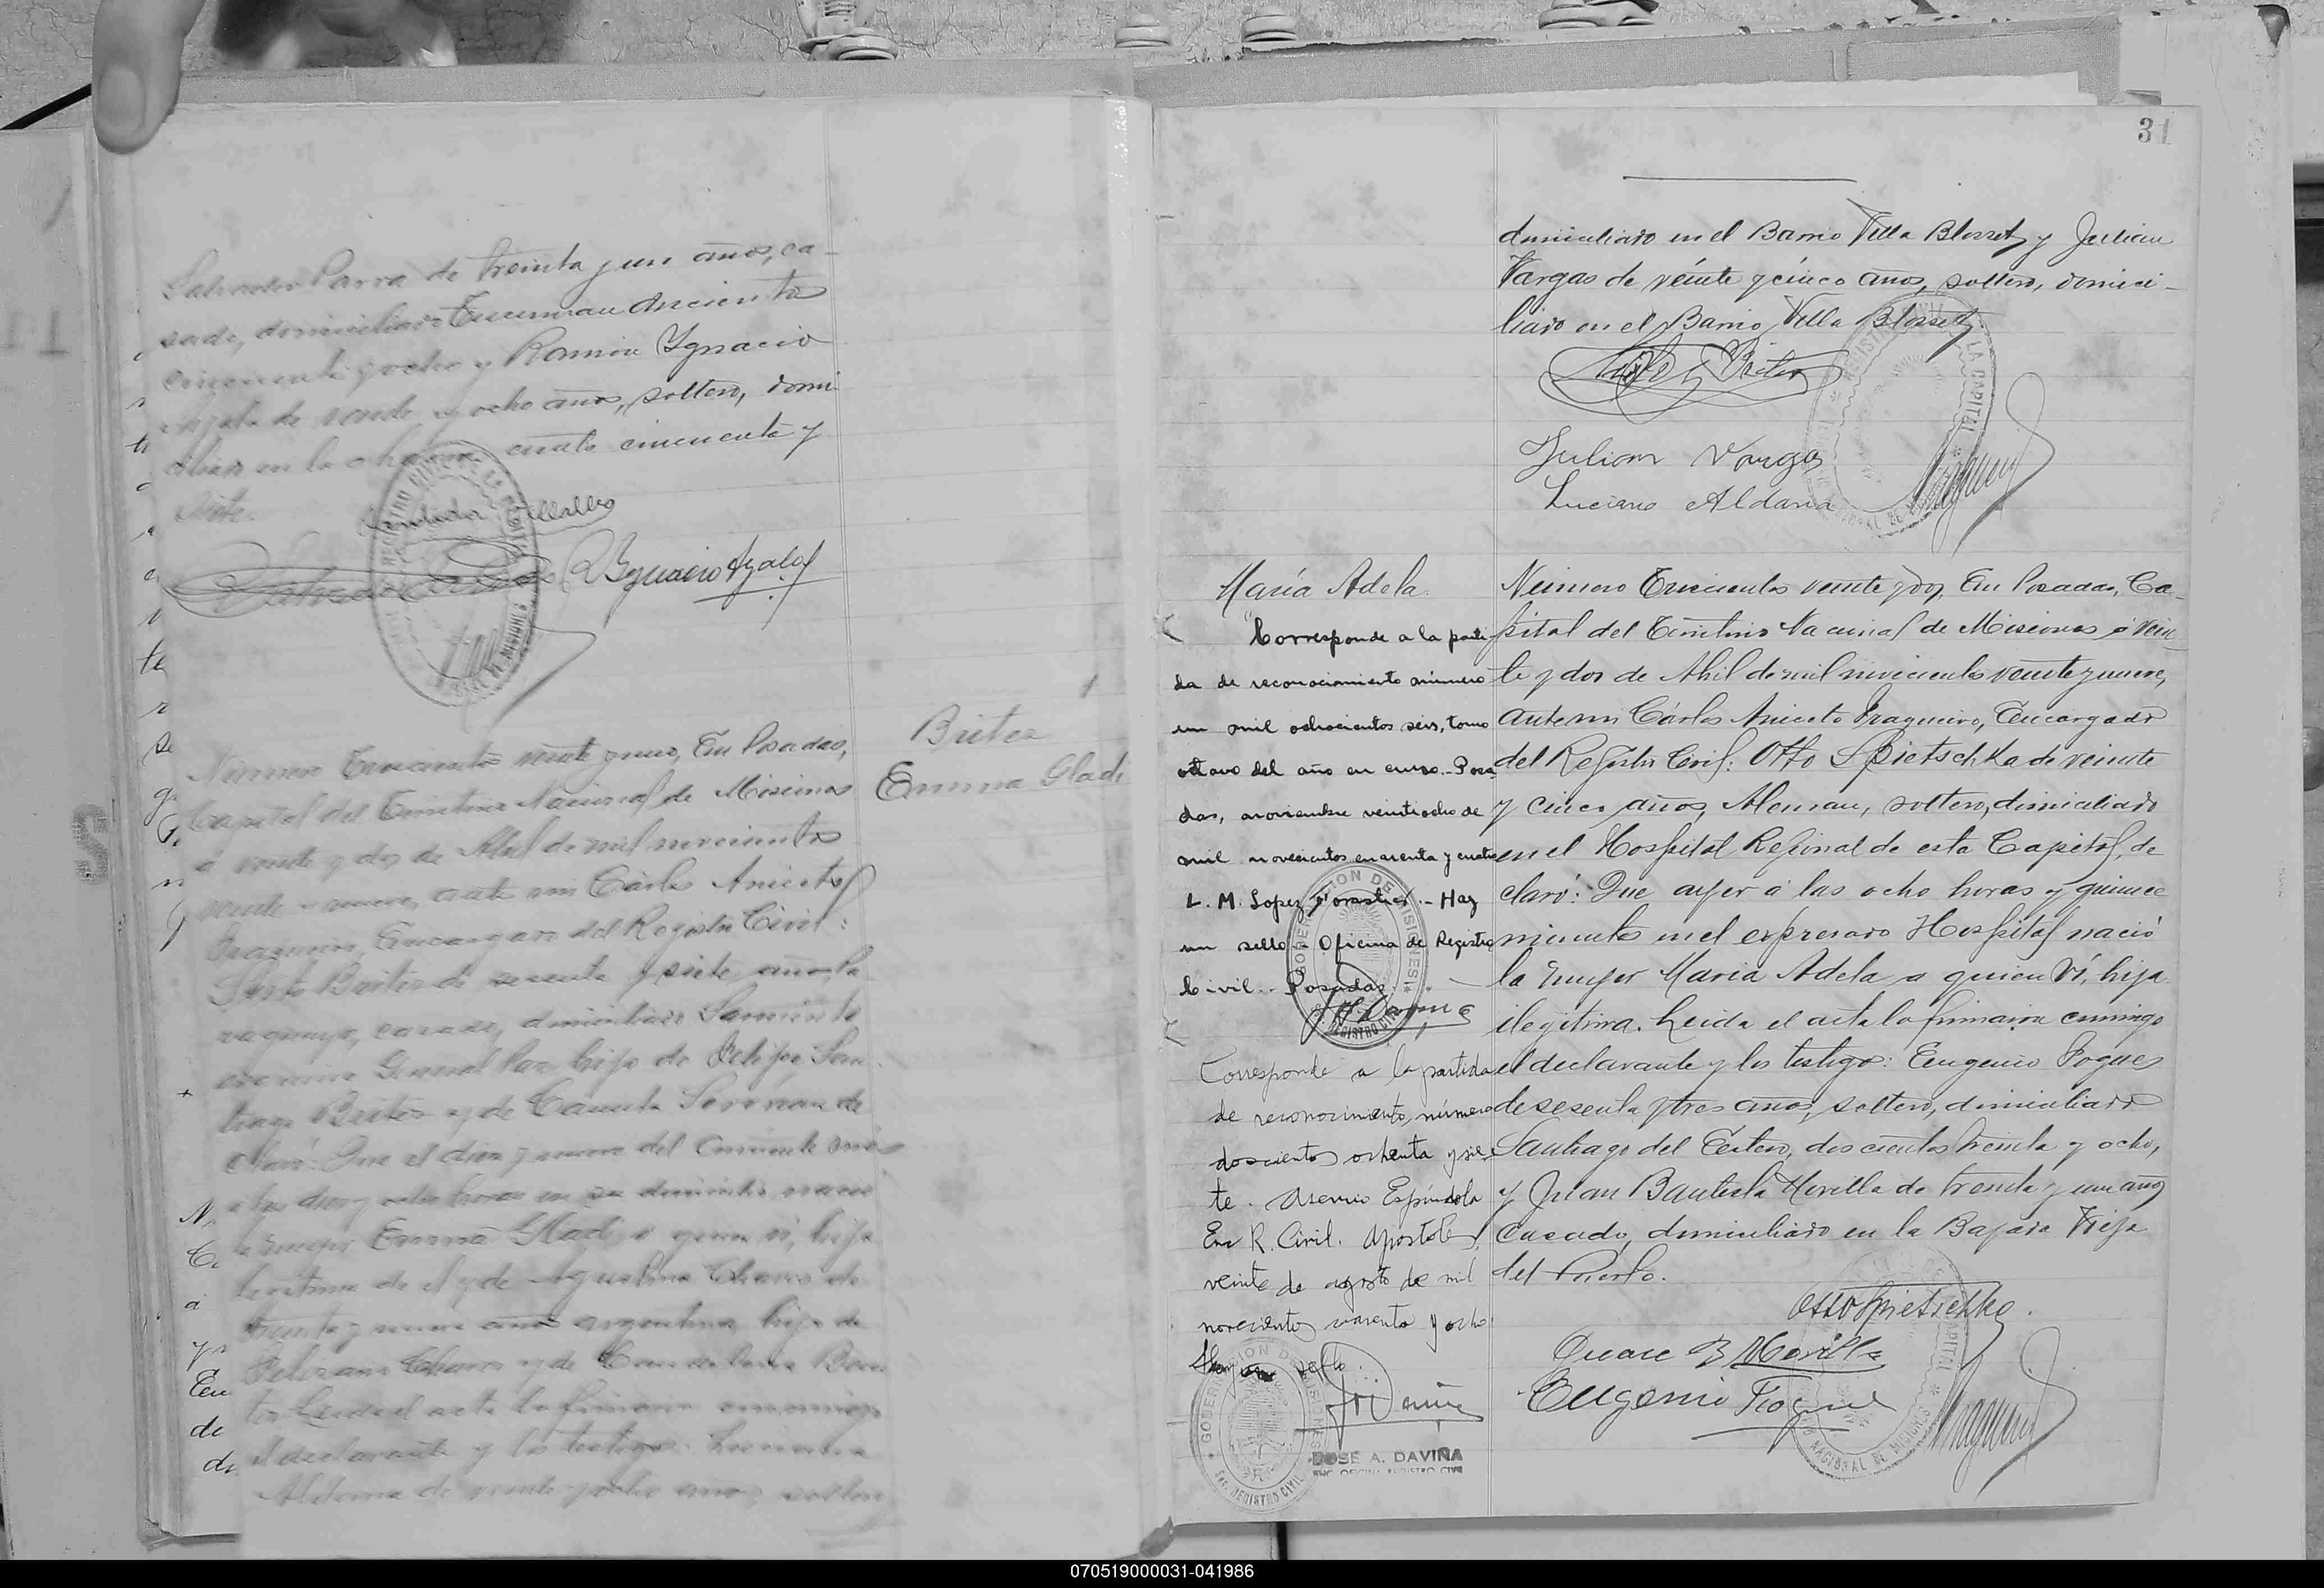 Salvador Parra de treinta y un años, ca-
sado, domiciliado Tucuman doscientos
cincuenta y ocho y Ramon Ygnacio
Ayala de veinte y ocho años, soltero, domi
ciliado en la chacra ciento cincuenta y
siete.
Candida Villalba
R Ygnacio Ayala
Britez
Emma Gladi
Número Trescientos veinte y uno, En Posadas,
Capital del Territorio Nacional de Misiones
a veinte y dos de Abril de mil novecientos
veinte y nueve, ante mi Cárlos Aniceto
Fragueiro, Encargado del Registro Civil:
Sixto Britez de sesenta y siete años, Pa
raguayo, casado, domiciliado Sarmiento
General Paz, hijo de Felipe San
tiago Britez y de
claró: Que el diez y nueve del corriente mes
a las diez y ocho horas en su domicilio nació
la mujer Emma Gladi a quien ví, hija
lejitima de el y de Agustina Chavez de
treinta y nueve años argentina, hija de
Chavez y de Candelaria
Leida el acta la firmaron conmigo
el declarante y los testigos: Luciano
Aldana de veinte y ocho años, soltero
31
domiciliado en el Barrio Villa Blosset y Julian
Vargas de veinte y cinco años, soltero, domici-
liado en el Barrio Villa Blosset.
Sixto Britez
Julian Vargas
Luciano Aldana
María Adela.
Corresponde a la parti-
da de reconocimiento número
un mil ochocientos seis, tomo
octavo del año en curso.- Posa
das, noviembre veintiocho de
mil novecientos cuarenta y cuatro
L. M. Lopez Forastier.- Hay
un sello - Oficina de Registro
Civil.- Posadas.
Corresponde a la partida
de reconocimiento, número
doscientos ochenta y sie-
te. Asencio Espíndola
Enc R. Civil. Apostoles,
veinte de agosto de mil
novecientos cuarenta y ocho
Hay un sello.
JOSE A. DAVIÑA
Número Trescientos veinte y dos, En Posadas, Ca-
pital del Territorio Nacional de Misiones á vein-
te y dos de Abril de mil novecientos veinte y nueve,
ante mi Cárlos Aniceto Fragueiro, Encargado
del Registro Civil: Otto Spietschka de veinte
y cinco años, Aleman, soltero, domiciliado
en el Hospital Regional de esta Capital, de
claró: Que ayer á las ocho horas y quince
minutos en el expresado Hospital nació
la mujer Maria Adela a quien ví, hija
ilegitima. Leida el acta la firmaron conmigo
el declarante y los testigos: Eugenio Foques
de sesenta y tres años, soltero, domiciliado
Santiago del Estero, doscientos treinta y ocho,
y Juan Bautista Morilla de treinta y un años
casado, domiciliado en la Bajada Vieja
del Puerto.
Otto Spietschka.
Juan B Morilla
Eugenio Foques
070519000031-041986